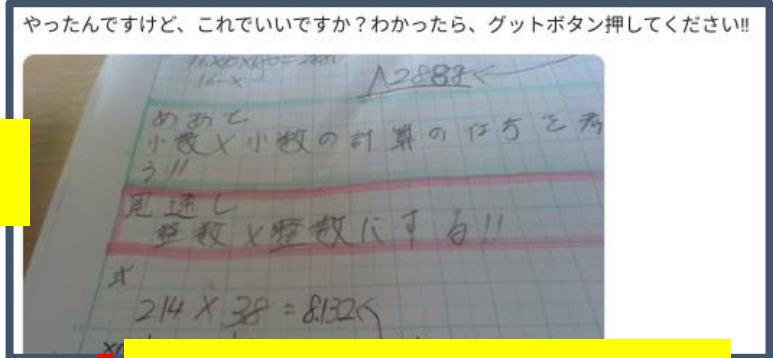 やったんですけど、これでいいですか?わかったら、グットボタン押してください!!
めあて
小数×小数の計算の仕方を考
う!!
見通し
整数×整数にする!!
式
214×38=8.132